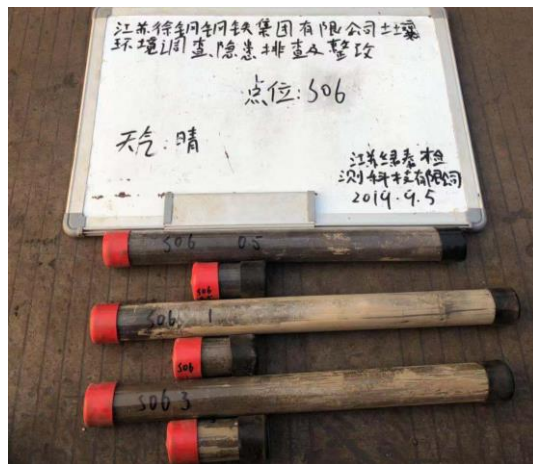 江苏徐钢钢铁集团有限公司土壤
环境调查、隐患排查及整改
点位：S06
天气：晴
江苏绿泰检
测科技有限公司
2019.9.5
S06 0.5
S06
S06 1
S06
S06 3